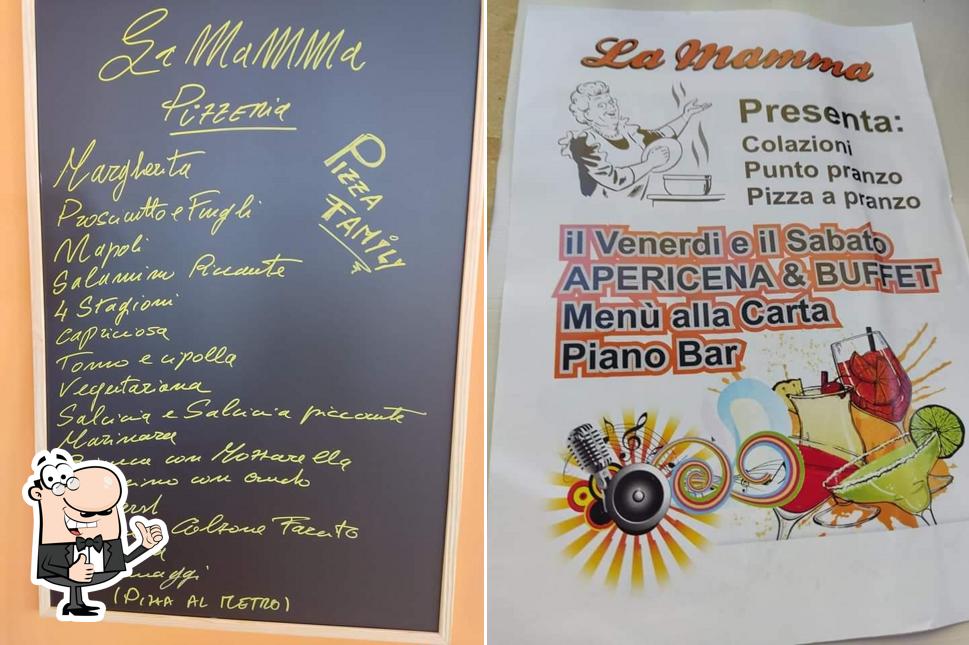 La Mamma
Pizzeria
Margherita
Prosciutto e Funghi
Napoli
Salamino Piccante
4 Stagioni
Capricciosa
Tonno e cipolla
Vegetariana
Salsiccia e Salsiccia piccante
Marinara
con Mozzarella
con crudo
Calzone Farcito
(Pizza al metro)
Pizza
Family
La Mamma
Presenta:
Colazioni
Punto pranzo
Pizza a pranzo
il Venerdi e il Sabato
APERICENA & BUFFET
Menù alla Carta
Piano Bar